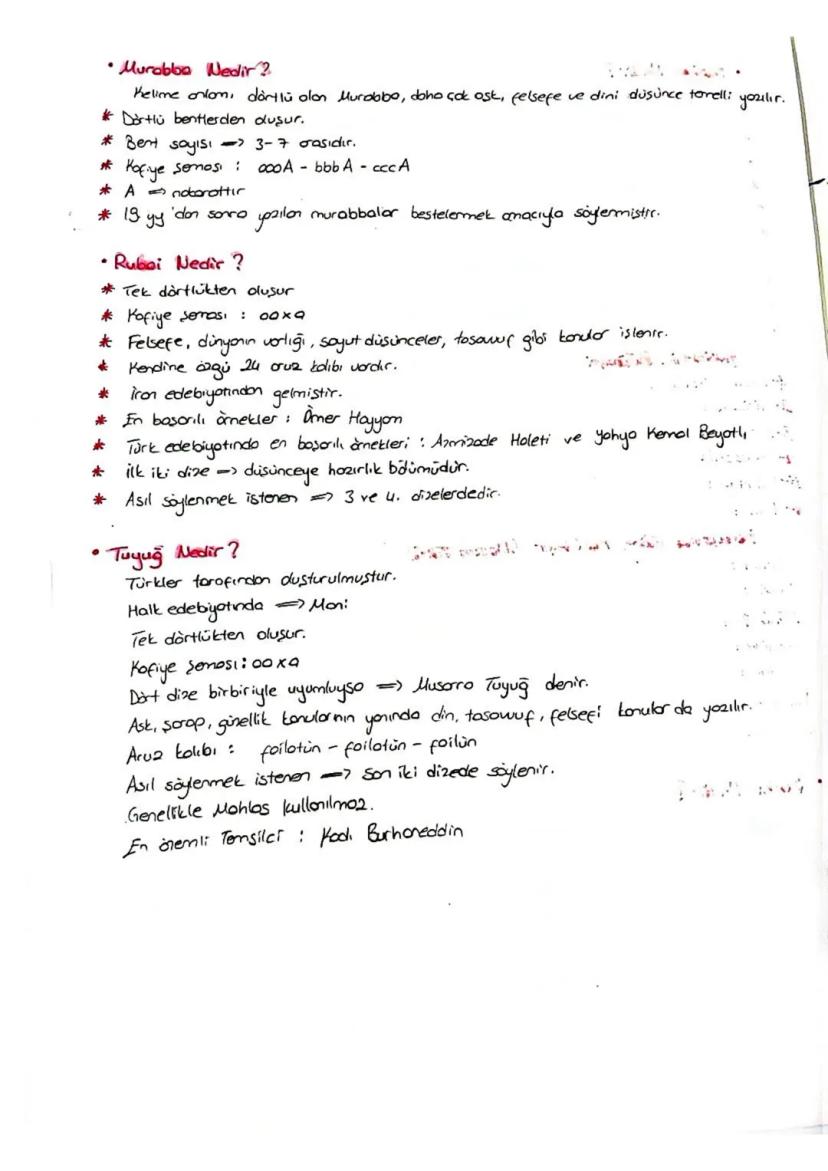 • Murabba Nedir?
Kelime anlamı dörtlü olan Murabba, daha çok aşk, felsefe ve dini düşünce temelli yazılır.
* Dörtlü bentlerden oluşur.
* Bent sayısı → 3-7 arasıdır.
* Kafiye şeması : aaaA - bbbA - cccA
* A ⇒ nakarattır
* 19 yy'dan sonra yazılan murabbalar bestelenmek amacıyla söylenmiştir.
• Rubai Nedir?
* Tek dörtlükten oluşur
* Kafiye şeması : aaxa
* Felsefe, dünyanın varlığı, soyut düşünceler, tasavvuf gibi konular işlenir.
* Kendine özgü 24 aruz kalıbı vardır.
* İran edebiyatından gelmiştir.
* En başarılı örnekler : Ömer Hayyam
* Türk edebiyatında en başarılı örnekleri : Azmizade Haleti ve Yahya Kemal Beyatlı
* İlk iki dize → düşünceye hazırlık bölümüdür.
* Asıl söylenmek istenen ⇒ 3 ve 4. dizelerdedir.
• Tuyuğ Nedir?
Türkler tarafından oluşturulmuştur.
Halk edebiyatında ⇒ Mani
Tek dörtlükten oluşur.
Kafiye şeması : aaxa
Dört dize birbiriyle uyumluysa ⇒ Musarra Tuyuğ denir.
Aşk, şarap, güzellik konularının yanında din, tasavvuf, felsefi konular da yazılır.
Aruz kalıbı : failatün - failatün - failün
Asıl söylenmek istenen → son iki dizede söylenir.
Genellikle Mahlas kullanılmaz.
En önemli Temsilci : Kadı Burhaneddin